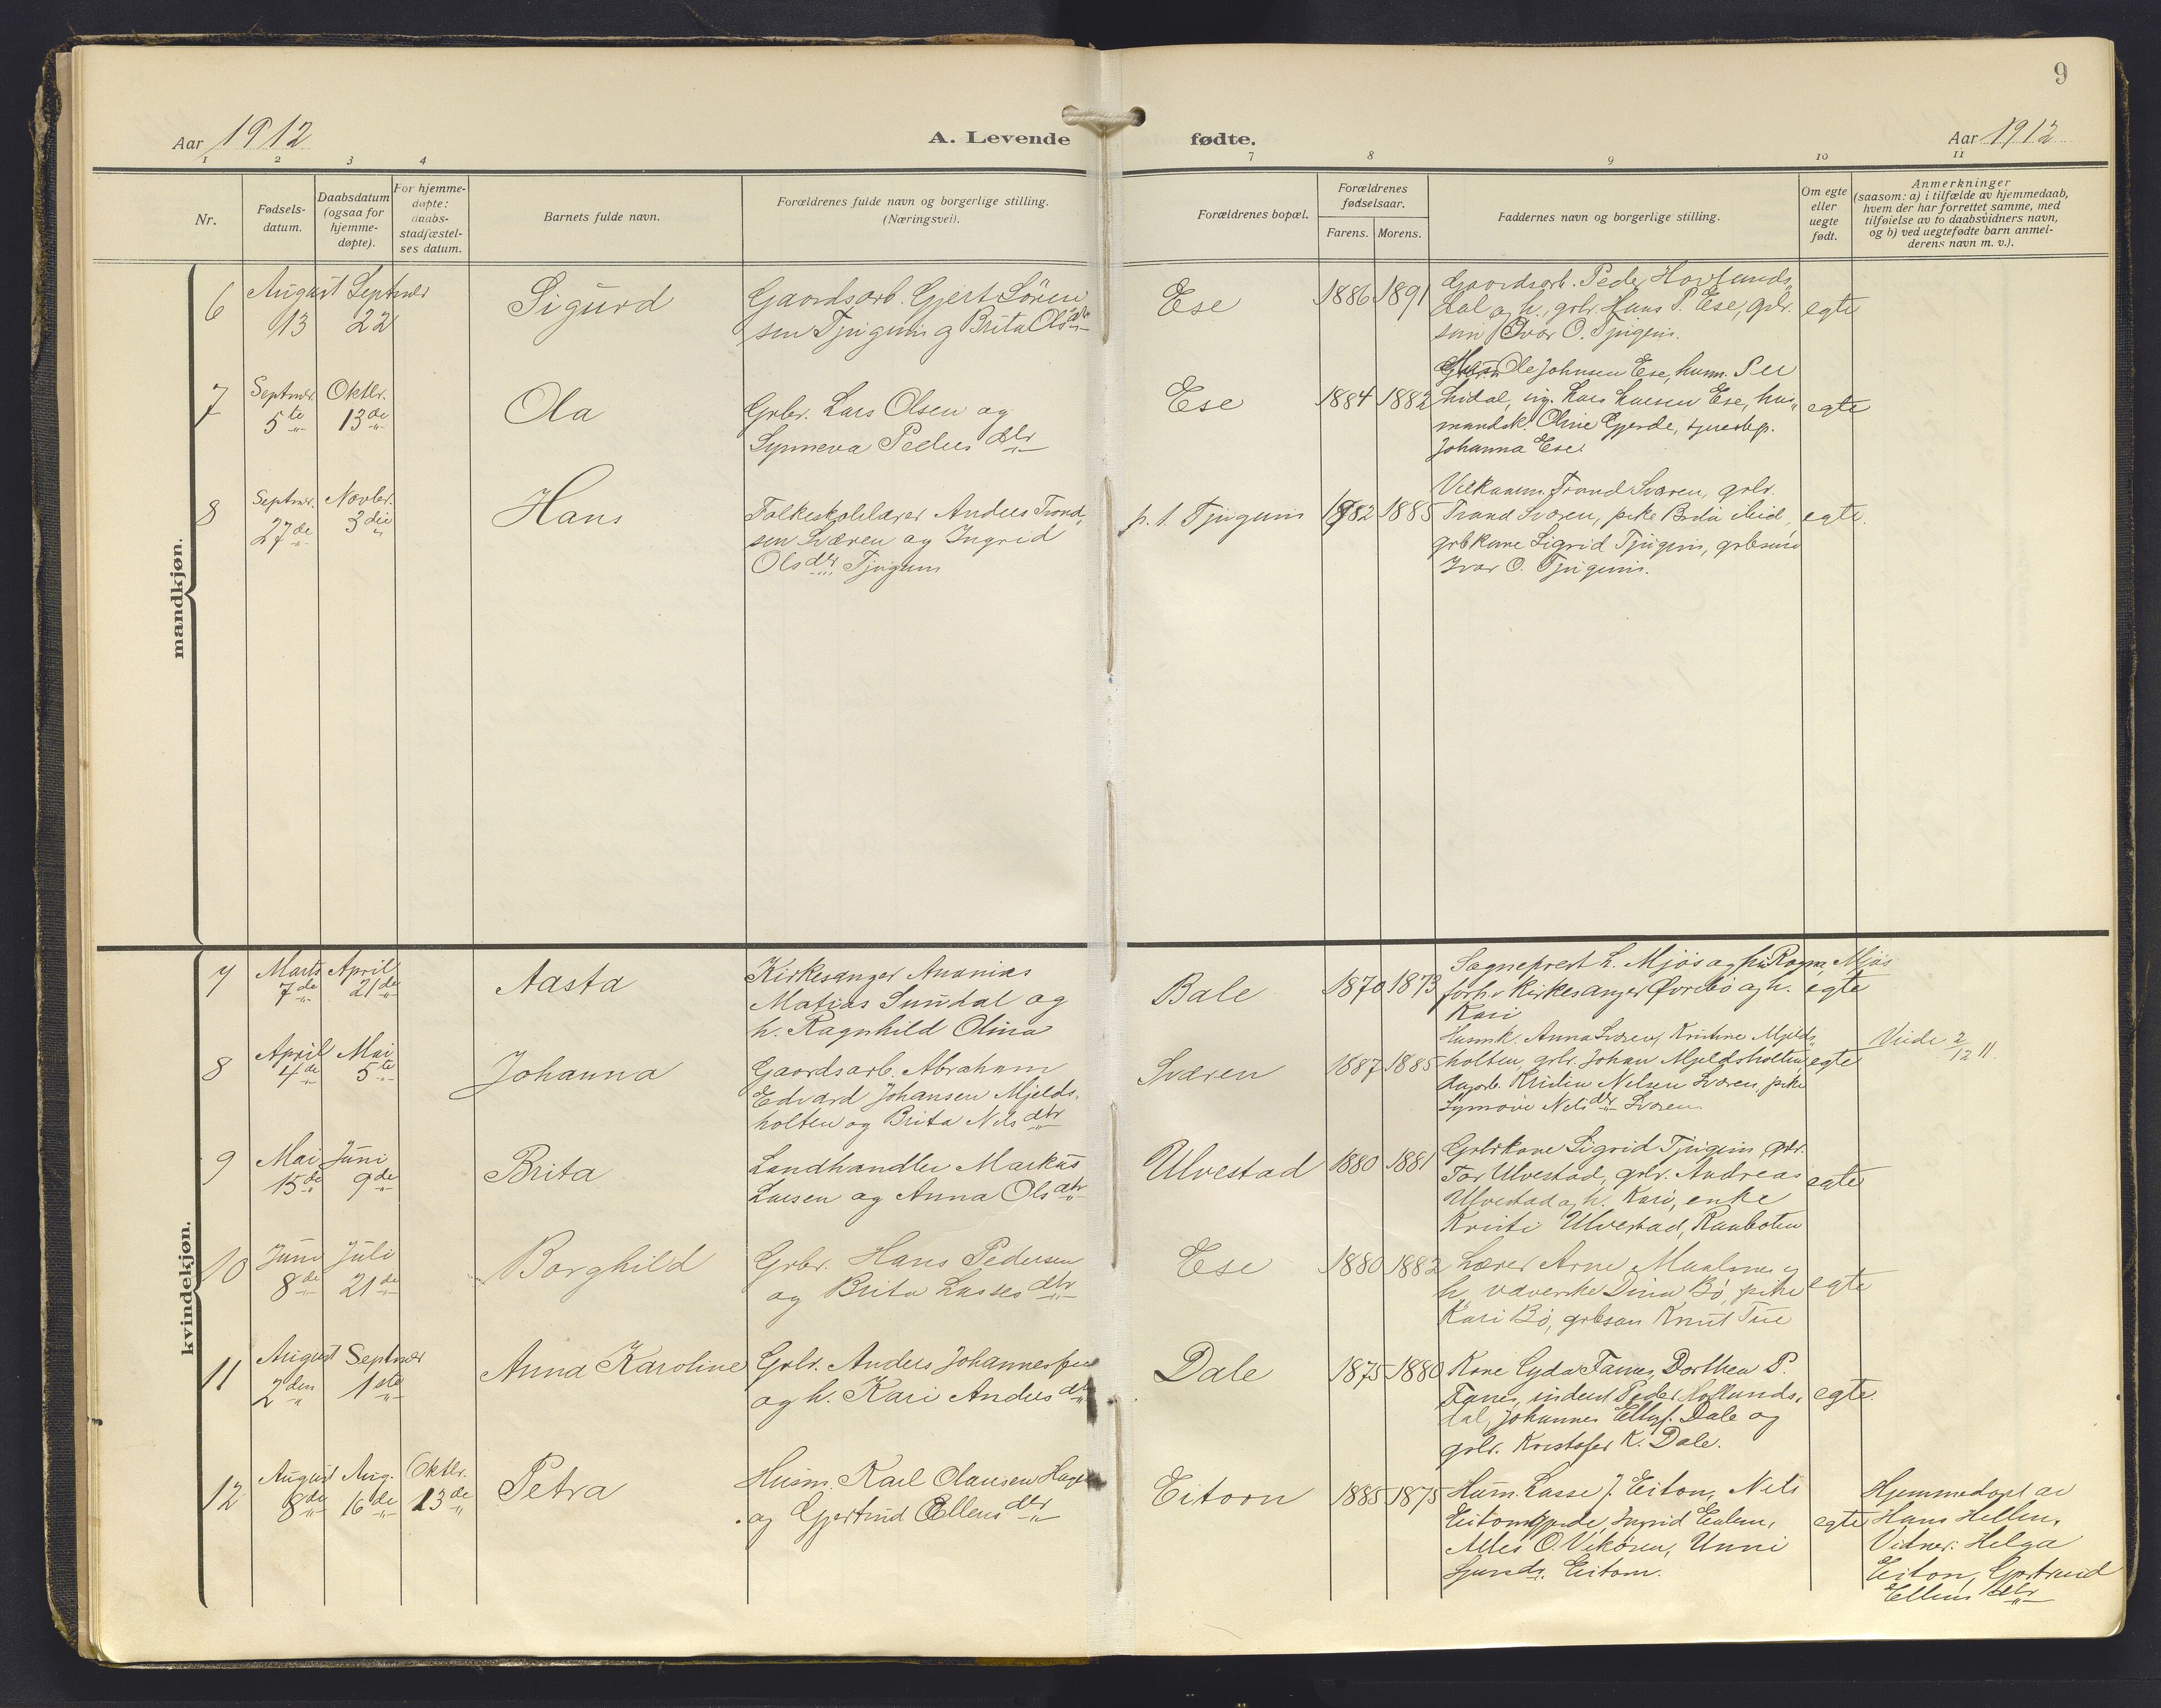 9
Aar 1912
A. Levende fødte.
Aar 1912
1 2 3 4 7 8 9 10 11
Nr.
Fødsels-
datum.
Daabsdatum
(ogsaa for
hjemme-
døpte).
For hjemme-
døpte:
daabs-
stadfæstel-
ses datum.
Barnets fulde navn.
Forældrenes fulde navn og borgerlige stilling.
(Næringsvei).
Forældrenes bopæl.
Forældrenes
fødselsaar.
Farens. Morens.
Faddernes navn og borgerlige stilling.
Om egte
eller
uegte
født.
Anmerkninger
(saasom: a) i tilfælde av hjemmedaab,
hvem der har forrettet samme, med
tilføielse av to daabsvidners navn,
og b) ved uegtefødte barn anmel-
derens navn m. v.).
mandkjøn.
6
August Septmbr
13 22
Sigurd
Gaardsarb. Gjert Sören
sen Tjugum og Brita Olsdtr
Ese
1886 1891
Gaardsarb. Peder Hovlands
dal og h., grbr. Hans P. Ese, gbr.
søn Ivar O. Tjugum.
egte
7
Septmbr. Oktbr.
5te 13de
Ola
Grbr. Lars Olsen og
Synneva Peders dtr
Ese
1884 1882
Ole Johnsen Ese, husm. Per
Lidal, ug. Lars Larsen Ese, hus
mandsk. Oline Gjerde, tjenestep.
Johanna Ese.
egte
8
Septmbr. Novbr.
27de 3die
Hans
Folkeskolelærer Anders Trond
sen Sværen og Ingrid
Olsdtr Tjugum
p. t. Tjugum
1882 1885
Trond Sværen, grbr.
Trond Sværen, pike Brita ibid,
grbkone Sigrid Tjugum, grbsøn
Ivar O. Tjugum.
egte.
kvindekjøn.
7
Marts April
7de 21de
Aasta
Kirkesanger Ananias
Matias Sundal og
h. Ragnhild Olina
Bale
1870 1873
Sogneprest L. Mjös og fru Ragna Mjös
forh.v kirkesanger Øvrebö og h.
Kari
egte
8
April Mai
4de 5te
Johanna
Gaardsarb. Abraham
Edvard Johansen Mjelds-
holten og Brita Nils dtr
Sværen
1887 1885
Husmk. Anna Sværen, Kristine Mjelds
holten, grbr. Johan Mjeldsholten,
Kristen Nelsen Sværen, pike
Synnöve Nelsdtr Sværen
egte
Viede 2/12 11.
9
Mai Juni
15de 9de
Brita
Landhandler Markus
Larsen og Anna Olsdtr
Ulvestad
1880 1881
Grbrkone Sigrid Tjugum, gbr.
Tor Ulvestad, grbr. Andreas
Ulvestad og h. Kari, enke
Kristi Ulvestad, Rauboten
egte
10
Juni Juli
8de 21de
Borghild
Grbr. Hans Pedersen
og Brita Lasses dtr
Ese
1880 1882
Lærer Arne Maalsnes og
h. væverske Dina Bö, pike
Kari Bö, grbsøn Knut Tue
egte
11
August Septmbr
2den 1ste
Anna Karoline
Grbr. Anders Johannessen
og h. Kari Anders dtr
Dale
1875 1880
Kone Gyda Fanes, Dorthea P.
Fanes, inderst Peder Hovlands-
dal, Johannes Ellefs. Dale og
grbr. Kristofer K. Dale.
egte.
12
August Aug. Oktbr.
8de 16de 13de
Petra
Husm. Karl Olausen Hagen
og Gjertrud Ellens dtr
Eitorn
1885 1875
Husm. Lasse J. Eitorn, Nils
Eitorngjerde, Ingrid
O. Vikören, Unni
Eitorn.
egte
Hjemmedøpt av
Hans Hellen.
Vidner: Helga
Eitorn, Gjertrud
Ellens dtr